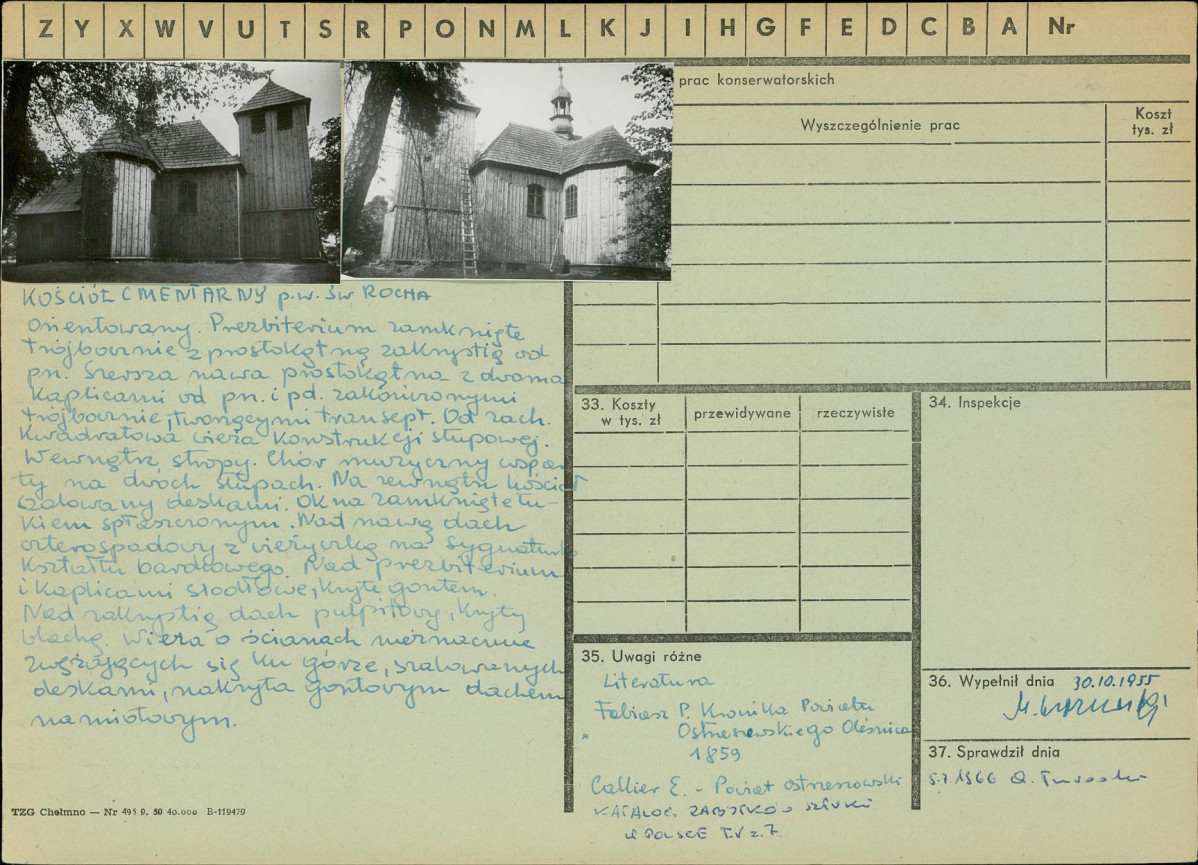 Z Y X W V U T S R P O N M L K J I H G F E D C B A Nr
prac konserwatorskich
Wyszczególnienie prac
Koszt
tys. zł
KOŚCIÓŁ CMENTARNY p.w. św ROCHA
Orientowany. Prezbiterium zamknięte
trójbocznie z prostokątną zakrystią od
pn. Szersza nawa prostokątna z dwoma
Kaplicami od pn. i pd. zakończonymi
trójbocznie, tworzącymi transept. Od zach.
Kwadratowa wieża konstrukcji słupowej.
Wewnątrz, stropy. Chór muzyczny wspar
ty na dwóch słupach. Na zewnątrz kościół
szalowany deskami. Okna zamknięte łu-
kiem spłaszczonym. Nad nawą dach
czterospadowy z wieżyczką na sygnaturkę
Kształtu barokowego. Nad prezbiterium
i kaplicami siodłowe, kryte gontem.
Nad zakrystią dach pulpitowy, kryty
blachą. Wieża o ścianach nieznacznie
zwężających się ku górze, szalowanych
deskami, nakryta gontowym dachem
namiotowym.
TZG Chełmno — Nr 495 9. 50 40.000 B-119479
33. Koszty
w tys. zł
przewidywane
rzeczywiste
34. Inspekcje
35. Uwagi różne
Literatura
Fabisz P. Kronika Powiatu
Ostrzeszewskiego Oleśnica
1859
Callier E. - Powiat Ostrzeszowski
KATALOG ZABYTKÓW SZTUKI
W POLSCE T.V z. 7.
36. Wypełnił dnia 30.10.1955
37. Sprawdził dnia
1966